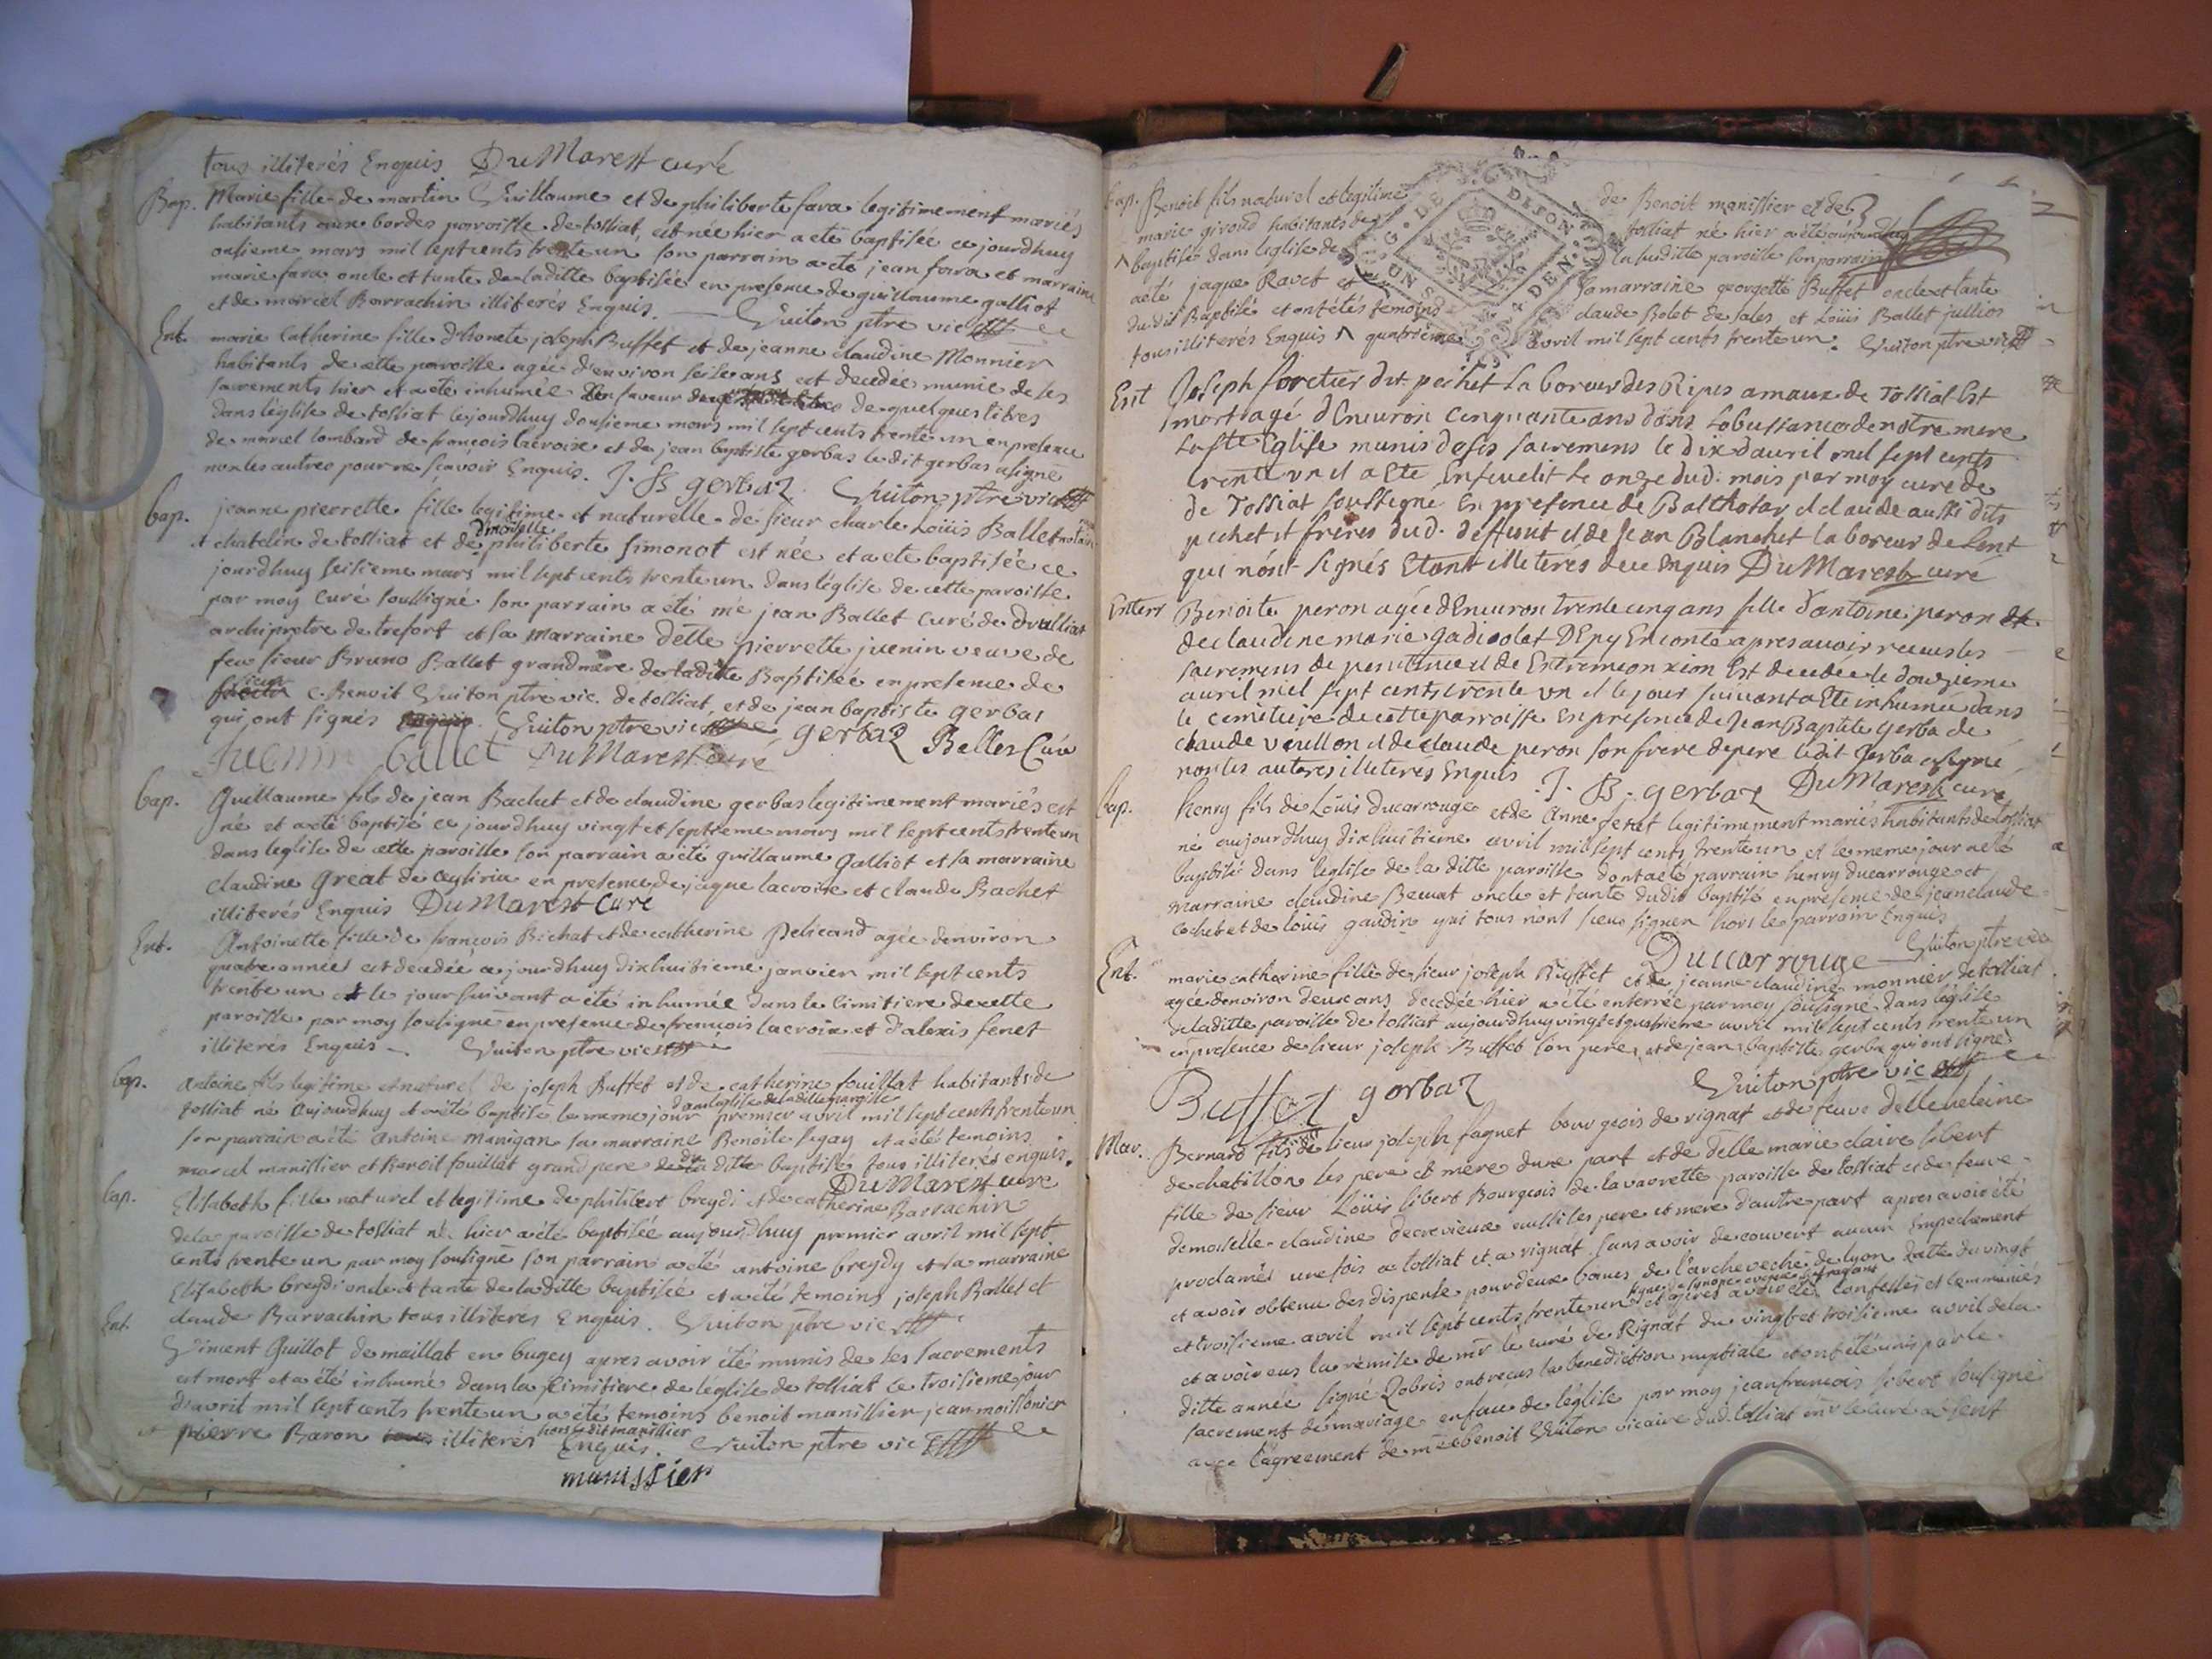 tous illiterés Enquis DuMarest curé
Bap. Marie fille de martin Guillaume et de philiberte fara legitimement mariés
habitants aux bordes paroisse de tossiat, est née hier a eté baptisée ce jourdhuy
onsieme mars mil sept cents trente un son parrain a eté jean fara et marraine
marie fara oncle et tante de laditte baptisée en presence de guillaume galliot
et de marcel Barrachin illiterés Enquis. Guiton ptre vic
Ent. marie Catherine fille d'honete joseph Buffet et de jeanne claudine Monnier
habitants de cette paroisse agée d'environ seise ans est decedée munie de ses
sacrements hier et a eté inhumée en faveur de quelques titres
dans l'église de tossiat cejourdhuy dousieme mars mil sept cents trente un en presence
de marcel lombard de françois lacroix et de jean baptiste gerbas le dit gerbas a signé
non les autres pour ne sçavoir Enquis. J. B gerbaz Guiton ptre vic
bap. jeanne pierrette fille legitime et naturelle de sieur charle Loüis Ballet notaire
et chatelin de tossiat et de dmoiselle philiberte Simonot est née et a ete baptisée ce
jourdhuy seisieme mars mil sept cents trente un dans l'église de cette paroisse
par moy Curé soussigné son parrain a été mre jean Ballet Curé de Drulliat
archiprêtre de tresort et sa marraine Delle pierrette juenin veuve de
feu sieur Bruno Ballet grandmere de laditte Baptisée en presence de
sieur Benoit Guiton ptre vic. de tossiat, et de jean baptiste gerbas
qui ont signés Guiton ptre vic gerbaz Ballet Curé
Juenin ballet DuMarest curé
bap. Guillaume fils de jean Bachet et de claudine gerbas legitimement mariés est
né et a eté baptisé ce jourdhuy vingt et septieme mars mil sept cents trente un
dans l'eglise de cette paroisse son parrain a été guillaume Galliot et sa marraine
Claudine Great de ceyziria en presence de jaque lacroix et claude Bachet
illiterés Enquis DuMarest Curé
Ent. Antoinette fille de françois Bichat et de catherine Pelicand agée denviron
quatre années est decedée ce jourdhuy dixhuitieme janvier mil sept cents
trente un et le jour suivant a été inhumée dans le cimitiere de cette
paroisse par moy soussigné en presence de françois lacroix et d'alexis feret
illiterés Enquis Guiton ptre vic
bap. Antoine fils legitime et naturel de joseph Buffet et de catherine fouillat habitants de
tossiat né aujourdhuy et a été baptisé le meme jour dans l'église de la ditte paroisse premier avril mil sept cents trente un
son parrain a été Antoine Manigan sa marraine Benoite segay et a été temoins
marcel manissier et Benoit fouillat grand pere du dit baptisé tous illiterés enquis.
DuMarest curé
bap. Elisabeth fille naturel et legitime de philibert breydi et de catherine Barrachin
de la paroisse de tossiat né hier a été baptisée aujourdhuy premier avril mil sept
cents trente un par moy soussigné son parrain a été antoine breydy et sa marraine
Elisabeth breydi oncle et tante de laditte baptisée et a été temoins joseph Ballet et
claude Barrachin tous illiterés Enquis. Guiton ptre vic
Ent. Vincent Guillot de maillat en bugey apres avoir été munis de ses sacrements
est mort et a été inhumé dans la cimitiere de l'église de tossiat le troisieme jour
d'avril mil sept cents trente un a été temoins benoit manissier jean moissonier
pierre Baron illiterés hors ledit manissier Enquis. Guiton ptre vic
manissier
bap. Benoit fils naturel et legitime de Benoit manissier et de
marie giroud habitants de tossiat né hier a été aujourdhuy
baptisé dans l'eglise de la susditte paroisse son parrain
a été jaque Ravet et sa marraine georgette Buffet oncle et tante
dudit Baptisé et ont étés temoins claude Bolet de sales et Loüis Ballet
tous illiterés Enquis ^ quatrieme avril mil sept cents trente un. Guiton ptre vic
G. DE DIJON
Ent Joseph foretier dit pechet Laboreur des Ripes amaux de Tossiat Est
mort agé d'Enuiron Cinquante ans dans Lobeissance de notre mere
La ste Eglise munis de ses sacremens le dix dauril mil sept cents
trente un il a Ete Enseuelit le onze dud. mois par moy curé de
de Tossiat soussigné En presence de Balthasar et claude aussi dits
pechet et freres dud. deffunt et de Jean Blanchet laboreur de Lent
qui n'ont signés Etant illeterés de ce enquis DuMarest curé
Enterr Benoite peron agée dEnuiron trente cinq ans fille d'antoine peron et
de claudine marie gadiolet DEpy En conté apres auoir receus les
sacremens de penitence et de Extremeonxion Est decedee le douzieme
auril mil sept cents trente un et le jour suiuant a Ete inhumée dans
le cemetiere de cette parroisse en presence de Jean Baptiste gerba de
claude vuillon et de claude peron son frere de pere ledit gerba a signé
non les autres illeterés Enquis J. B. gerbaz DuMarest curé
bap. henry fils de Loüis ducarrouge et de Anne feret legitimement mariés habitants de tossiat
né aujourdhuy dixhuitieme avril mil sept cents trente un et le meme jour a eté
baptisé dans l'eglise de la ditte paroisse dont a eté parrain henry ducarrouge et
marraine claudine Beuvat oncle et tante dudit baptisé en presence de jean claude
cochet et de loüis gaudin qui tous n'ont sceu signer hors le parrain Enquis
Ducarrouge Guiton ptre vic
Ent. marie catharine fille de sieur joseph Buffet et de jeanne claudine monnier de tossiat
agée denviron deux ans decedée hier a été enterrée par moy soussigné dans l'église
de laditte paroisse de tossiat aujourdhuy vingt et quatrieme avril mil sept cents trente un
en presence de sieur joseph Buffet son pere, et de jean baptiste gerba qui ont signé
Buffet gerbaz Guiton ptre vic
Mar. Bernard fils de sieur joseph faguet bourgeois de rignat et de feuve Delle heleine
de chatillon ses pere et mere dune part et de Delle marie claire sibert
fille de sieur Loüis sibert Bourgeois de lavavrette paroisse de tossiat et de feuve
demoiselle claudine decrevieux aussi ses pere et mere d'autre part apres avoir été
proclamés une fois a tossiat et a rignat sans avoir decouvert aucun Empechement
et avoir obtenu des dispense pour deux bancs de l'archeveché de lyon datte du vingt
et troisieme avril mil sept cents trente un et apres avoir été confessés et communiés
et avoir eus la remise de mr le curé de Rignat du vingt et troisieme avril de la
ditte année signé Dobris ont reçus la benediction nuptiale et ont été unis par le
sacrement de mariage en face de l'église par moy jean françois sibert soussigné
avec l'agreement de mre benoit Guiton vicaire dud. tossiat mr le curé absent